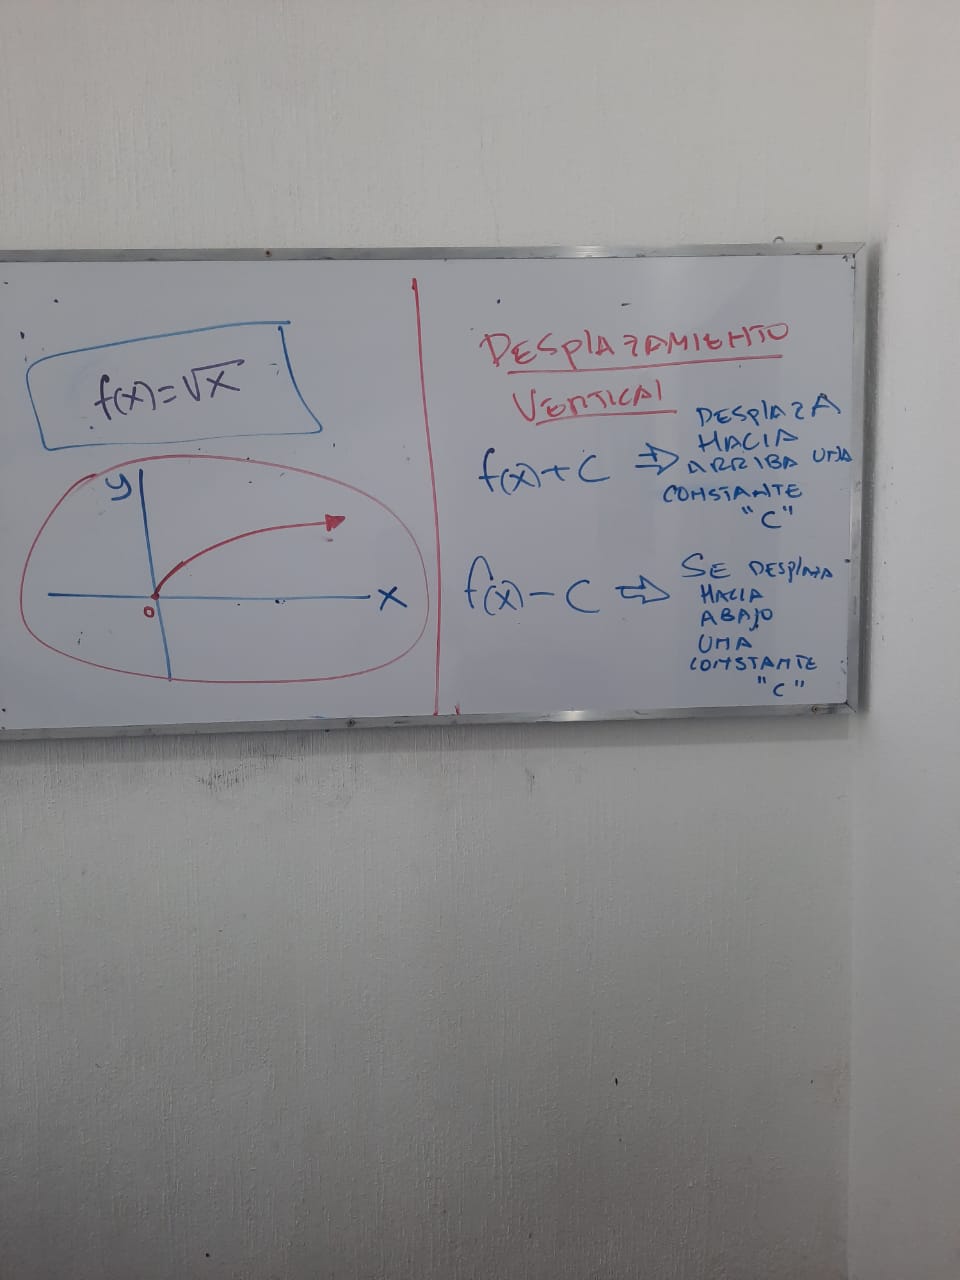 f(x)=√x
y
x
0
DESPLAZAMIENTO
VERTICAL
f(x)+C ⇒ DESPLAZA
HACIA
ARRIBA UNA
CONSTANTE
"C"
f(x)-C ⇒ SE DESPLAZA
HACIA
ABAJO
UNA
CONSTANTE
"C"